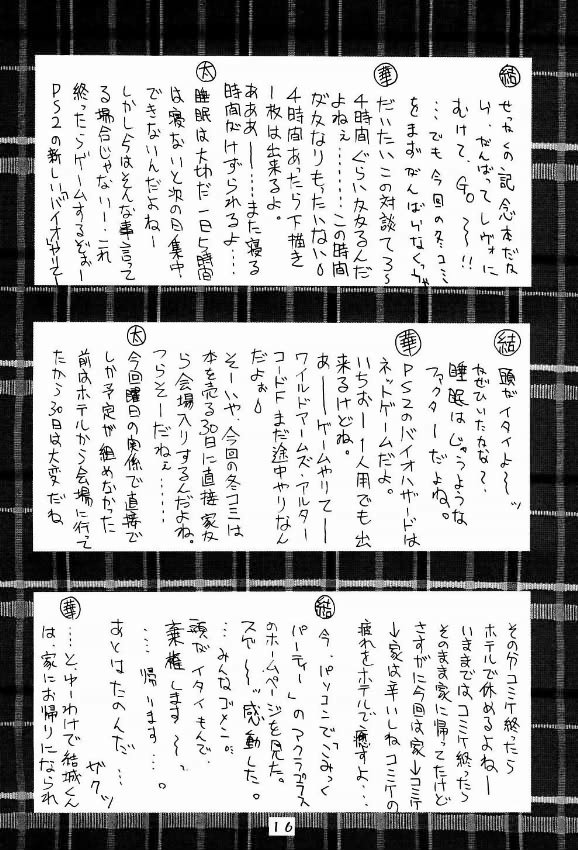 結
せっかくの記念本だな
い、がんばってレヴォに
むけて、GO〜〜!!
…でも今回の冬コミ
をまずがんばらなくっちゃ
華
だいたいこの対談てろ〜
4時間ぐらい
よねぇ……この時間
がなりもったいない
4時間あったら下描き
1枚は出来るよ。
あああー……また寝る
時間がけずられるよ…
太
睡眠は大切だ一日5時間
は寝ないと次の日集中
できないんだよねー
しかし今はそんな事言って
る場合じゃないー!これ
終ったらゲームするぞぉー
PS2の新しいバイオやりてー
結
頭がイタイよ〜〜ッ
かぜひいたかな〜。
睡眠はじゅうような
ファクターだよね。
華
PS2のバイオハザードは
ネットゲームだよ。
いちおー1人用でも出
来るけどね。
あー——ゲームやりてー
ワイルドアームズ・アルター
コードFまだ途中やりなん
だよぉ
そーいや今回の冬コミは
本を売る30日に直接家
ら会場入りするんだよね。
つらそーだねぇ……
太
今回曜日の関係で直接で
しか予定が組めなかた
前はホテルから会場に行って
たから30日は大変だね
その分コミケ終ったら
ホテルで休めるよねー
いままではコミケ終ったら
そのまま家に帰ってたけど
さすがに今回は家→コミケ
→家は辛いしねコミケの
疲れをホテルで癒すよ…
結
今、パソコンで「こみっく
パーティー」のアクアプラス
のホームページを見た。
スゲ〜〜ッ感動した。
…みんなゴメン。
頭がイタイもんで、
棄権します〜。
…帰ります…。
あとはたのんだ…
ザクッ
華
…とゆーわけで結城くん
は家にお帰りになられ
16